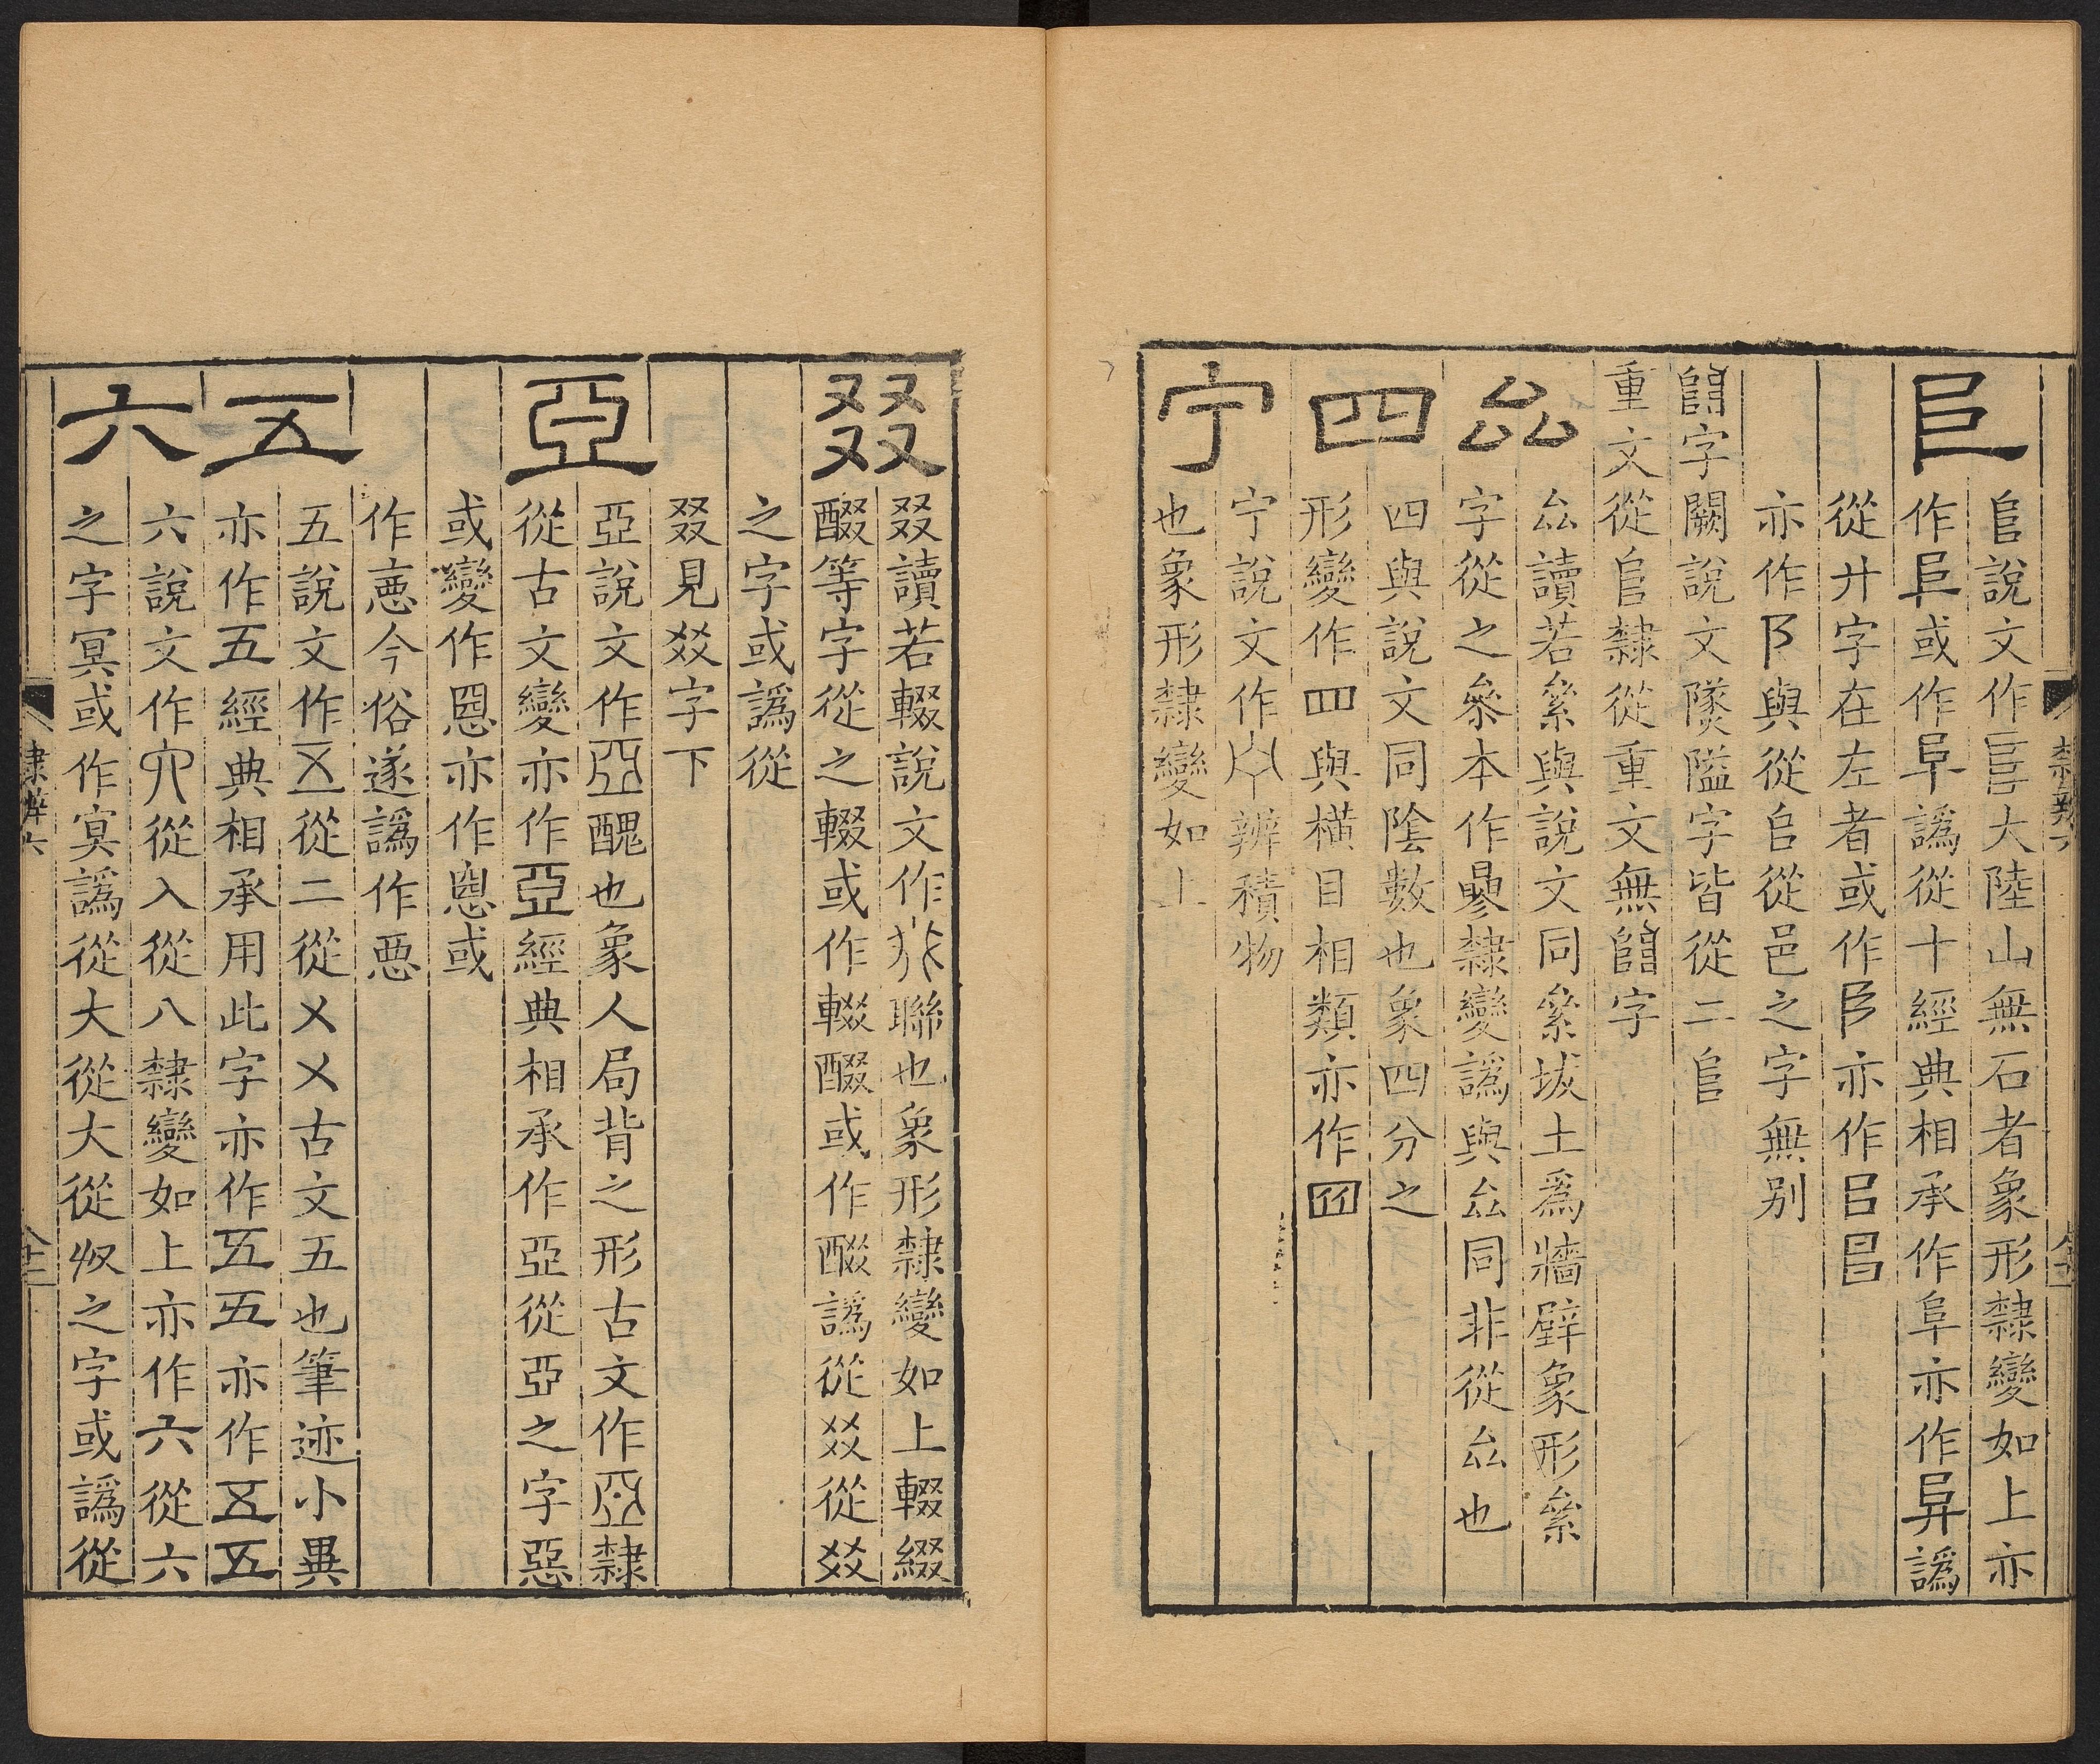 𨸏
𨸏說文作𨸏大陸山無石者象形隸變如上亦
作𨸏或作阜譌從十經典相承作阜亦作𨸏譌
從廾字在左者或作阝亦作㠯𨸏
亦作阝與從㠯從邑之字無別
𨺅字闕說文𨽿隘字皆從二𨸏
重文從𨸏隸從重文無𨺅字
厽
厽讀若絫與說文同絫坺土爲牆壁象形絫
字從之喿本作曑隸變譌與厽同非從厽也
四
四與說文同陰數也象四分之
形變作罒與橫目相類亦作𦉭
宁
宁說文作宁辨積物
也象形隸變如上
叕
叕讀若輟說文作叕聯也象形隸變如上輟綴
醊等字從之輟或作輟醊或作醊譌從㸚從㸚
之字或譌從
叕見㸚字下
亞
亞說文作亞醜也象人局背之形古文作亞隸
從古文變亦作亞經典相承作亞從亞之字惡
或變作𢙣亦作𢙣或
作𢙣今俗遂譌作悪
五
五說文作㐅從二從㐅㐅古文五也筆迹小異
亦作五經典相承用此字亦作五五亦作五五
六
六說文作六從入從八隸變如上亦作六從六
之字冥或作𡨋譌從大從大從𠬞之字或譌從
隸辨六